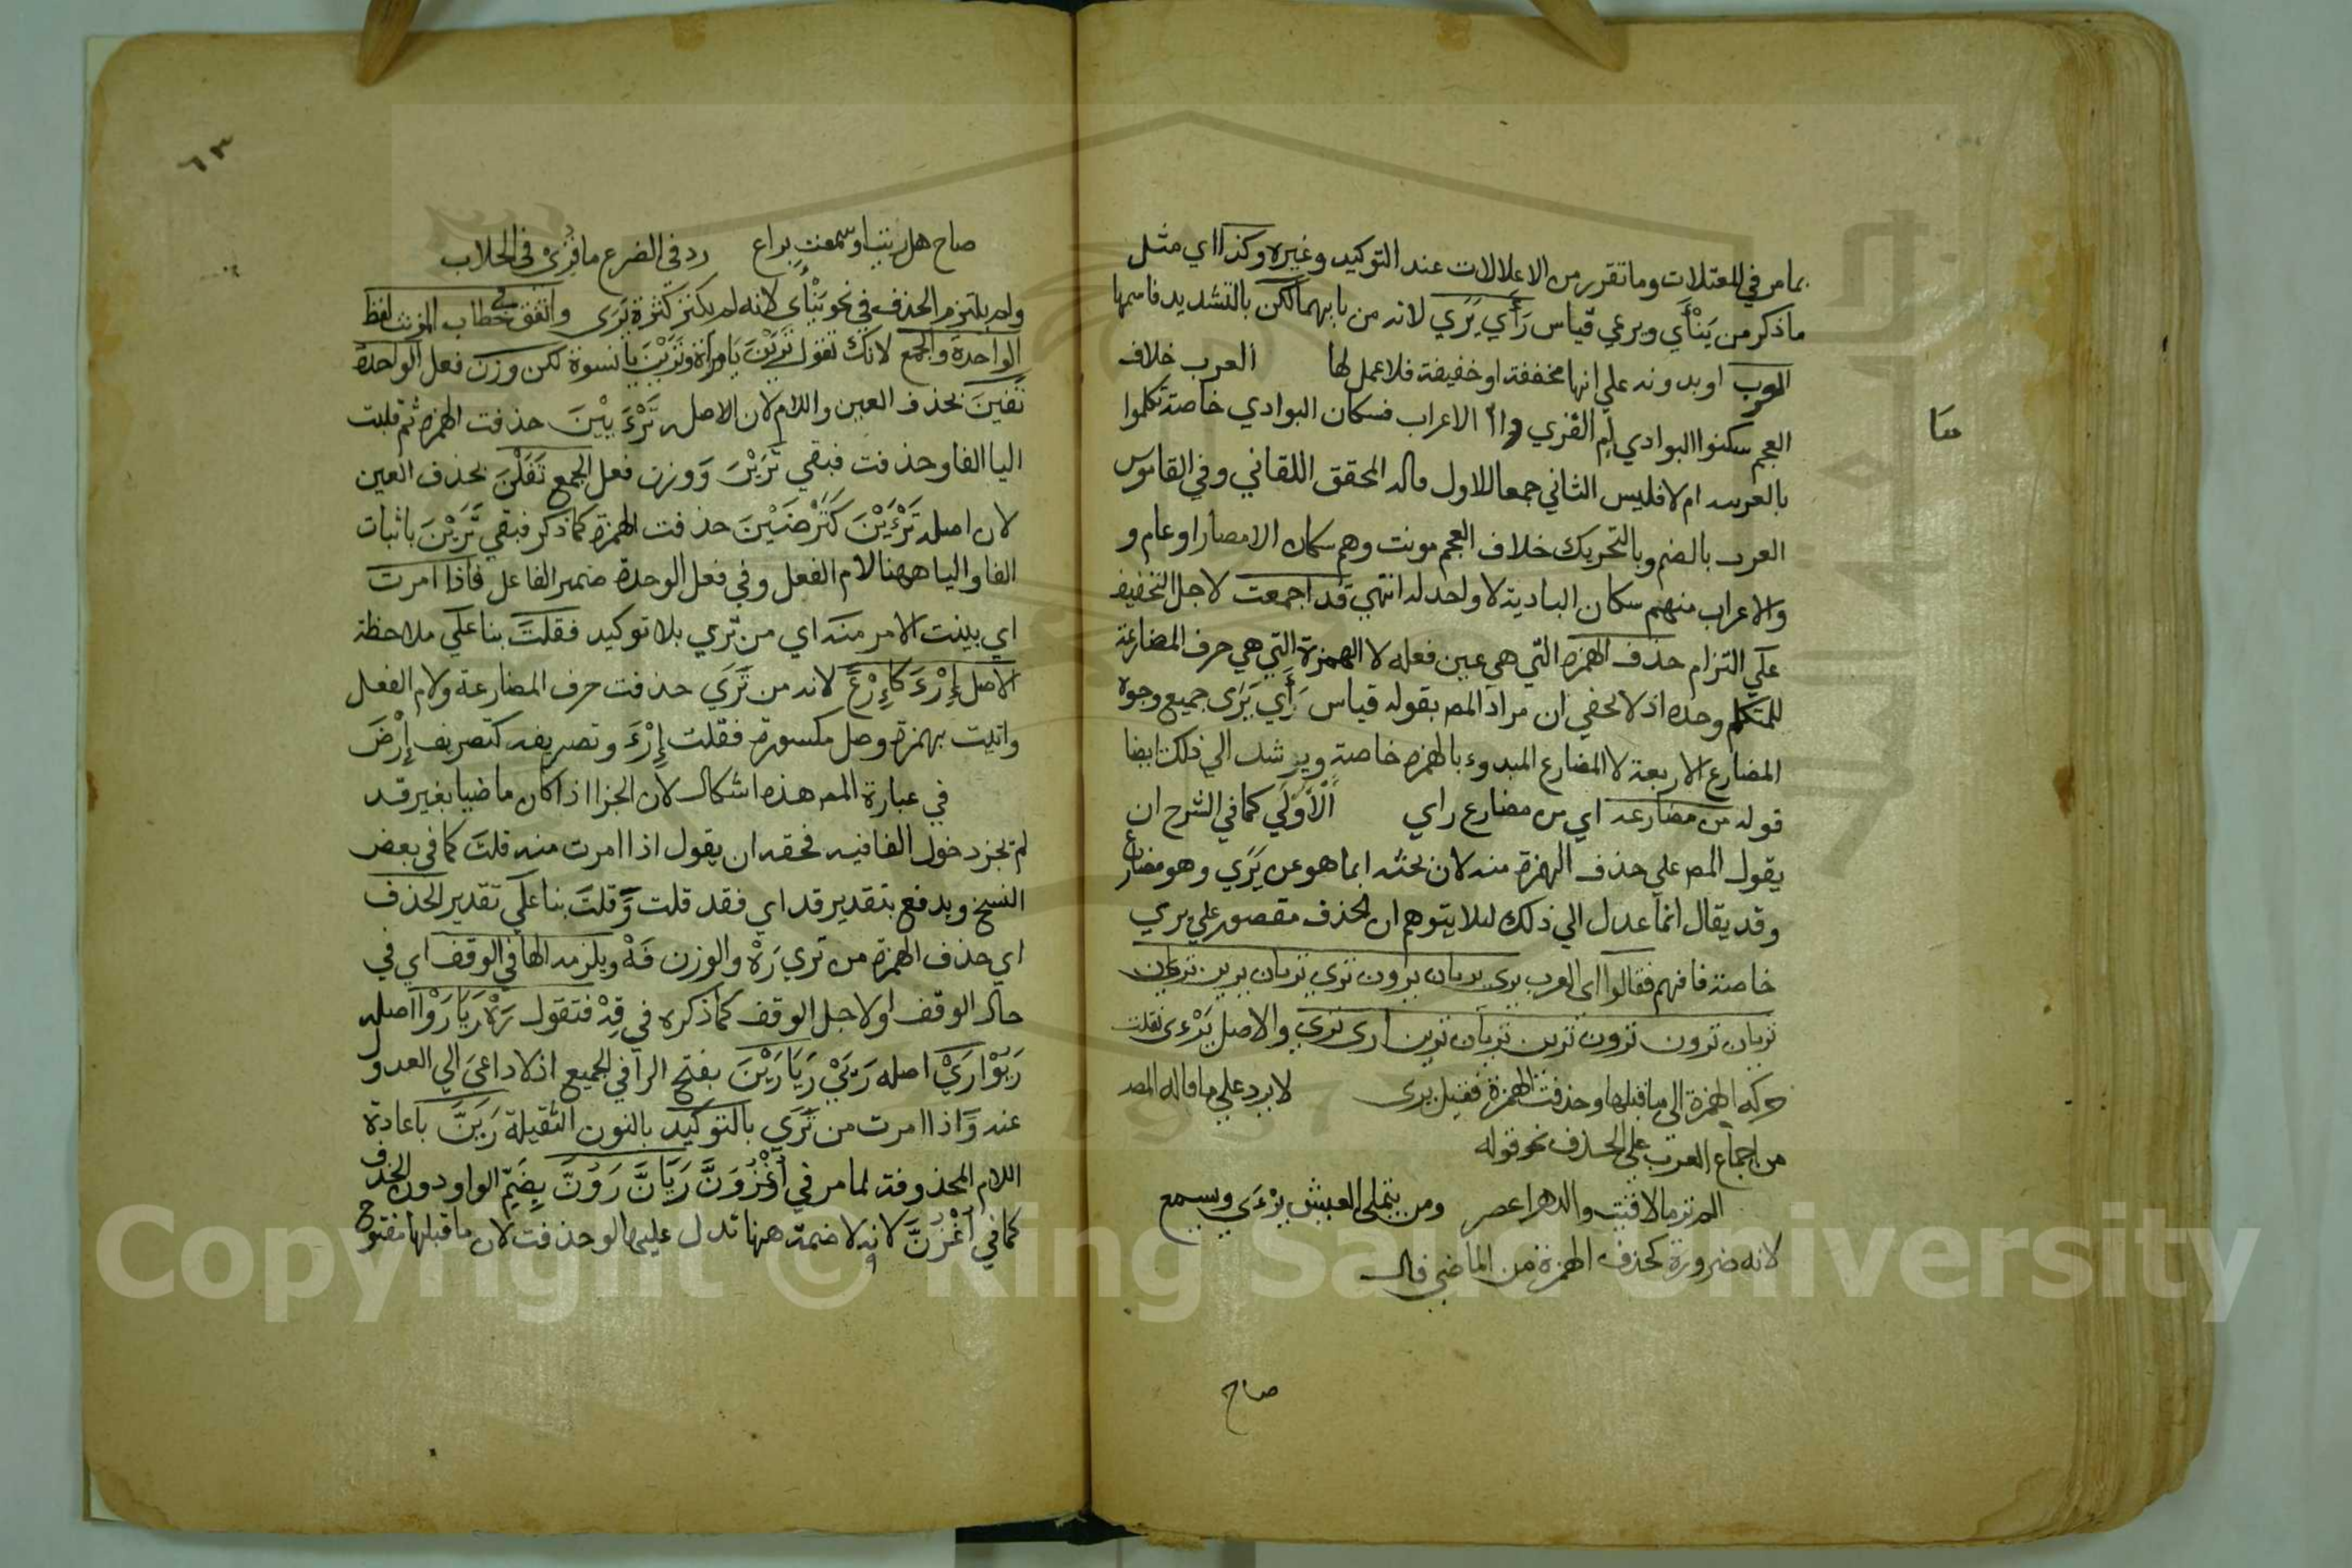 بما مر في المعتلات وما تقرر من الاعلالات عند التوكيد وغيره وكذا اي مثل
ما ذكر من يَنْأَي ويرعي قياس رَأَي يَرَي لانه من بابهما لكن بالتشديد فاسمها
العرب او بدونه علي انها مخففة او خفيفة فلا عمل لها العرب خلاف
العجم سكنوا البوادي ام القري واما الاعراب فسكان البوادي خاصة تكلموا
بالعربية ام لا فليس الثاني جمعا للاول قاله المحقق اللقاني وفي القاموس
العرب بالضم وبالتحريك خلاف العجم مونث وهم سكان الامصار او عام و
والاعراب منهم سكان البادية لا واحد له انتهي قد اجمعت لاجل التخفيف
علي التزام حذف الهمزة التي هي عين فعله لا الهمزة التي هي حرف المضارعة
للمتكلم وحده اذ لا يخفي ان مراد المص بقوله قياس رَأَي يَرَى جميع وجوه
المضارع الاربعة لا المضارع المبدوء بالهمزة خاصة ويرشد الي ذلك ايضا
قوله من مضارعه اي من مضارع راي اَلْاَوْلَي كما في الشرح ان
يقول المص علي حذف الهمزة منه لان بحثه انما هو عن يَرَي وهو مضارع
وقد يقال انما عدل الي ذلك ليلا يتوهم ان الحذف مقصور علي يري
خاصة فافهم فقالوا اي العرب يرى يريان يرون تري تريان يرين تري
تريان ترون ترين تريان ترين ارى نري والاصل يَرْءَى نقلت
حركة الهمزة الى ما قبلها وحذفت الهمزة فقيل يرى لا يرد علي ما قاله المص
من اجماع العرب علي الحذف نحو قوله
الم تر ما لاقيت والدهر اعصر ومن يتملى العيش يَرْءَي ويسمع
لانه ضرورة كحذف الهمزة من الماضي قال
صاح
٦٣
صاح هل ريت او سمعت براع رد في الضرع ما قرى في الحلاب
ولم يلتزم الحذف في نحو يَنْأَي لانه لم يكثر كثرة يَرَى واتفق في خطاب المونث لفظ
الواحدة والجمع لانك تقول تَرَيْنَ يا مرأة وتَرَيْنَ يا نسوة لكن وزن فعل الواحدة
تَفَيْنَ بحذف العين واللام لان الاصل تَرْءَيِيْنَ حذفت الهمزة ثم قلبت
اليا الفا وحذفت فبقي تَرَيْنَ وَوزن فعل الجمع تَفَلْنَ بحذف العين
لان اصله تَرْءَيْنَ كَتَرْضَيْنَ حذفت الهمزة كما ذكر فبقي تَرَيْنَ باثبات
الفا واليا ههنا لام الفعل وفي فعل الوحدة ضمير الفاعل فاذا امرت
اي بينت الامر منه اي من تَري بلا توكيد فقلتَ بنا علي ملاحظة
الاصل إِرْءَ كَاِرْعَ لانه من تَرَي حذفت حرف المضارعة ولام الفعل
واتيت بهمزة وصل مكسورة فقلت إِرْءَ وتصريفه كتصريف إِرْضَ
في عبارة المص هذه اشكال لان الجزا اذا كان ماضيا بغير قد
لم يجز دخول الفا فيه فحقه ان يقول اذا امرت منه قلتَ كما في بعض
النسخ ويدفع بتقدير قد اي فقد قلت وَقلتَ بنا علي تقدير الحذف
اي حذف الهمزة من تري رَهْ والوزن فَهْ ويلزمه الها في الوقف اي في
حال الوقف او لاجل الوقف كما ذكره في قِهْ فتقول رَهْ رَيَا رَوْا اصله
رَيُوْا رَيْ اصله رَيِيْ رَيَا رَيْنَ بفتح الرا في الجميع اذ لا داعيَ الي العدو
عنه وَاذا امرت من تَرَي بالتوكيد بالنون الثقيلة رَيَنَّ باعادة
اللام المحذوفة لما مر في أُغْزُوَنَّ رَيَانَّ رَوُنَّ بِضَمِّ الواو دون الحذف
كما في أُغْزُنَّ لانه لا ضمة هنا تدل عليها لو حذفت لان ما قبلها مفتوح
Copyright © King Saud University
1957